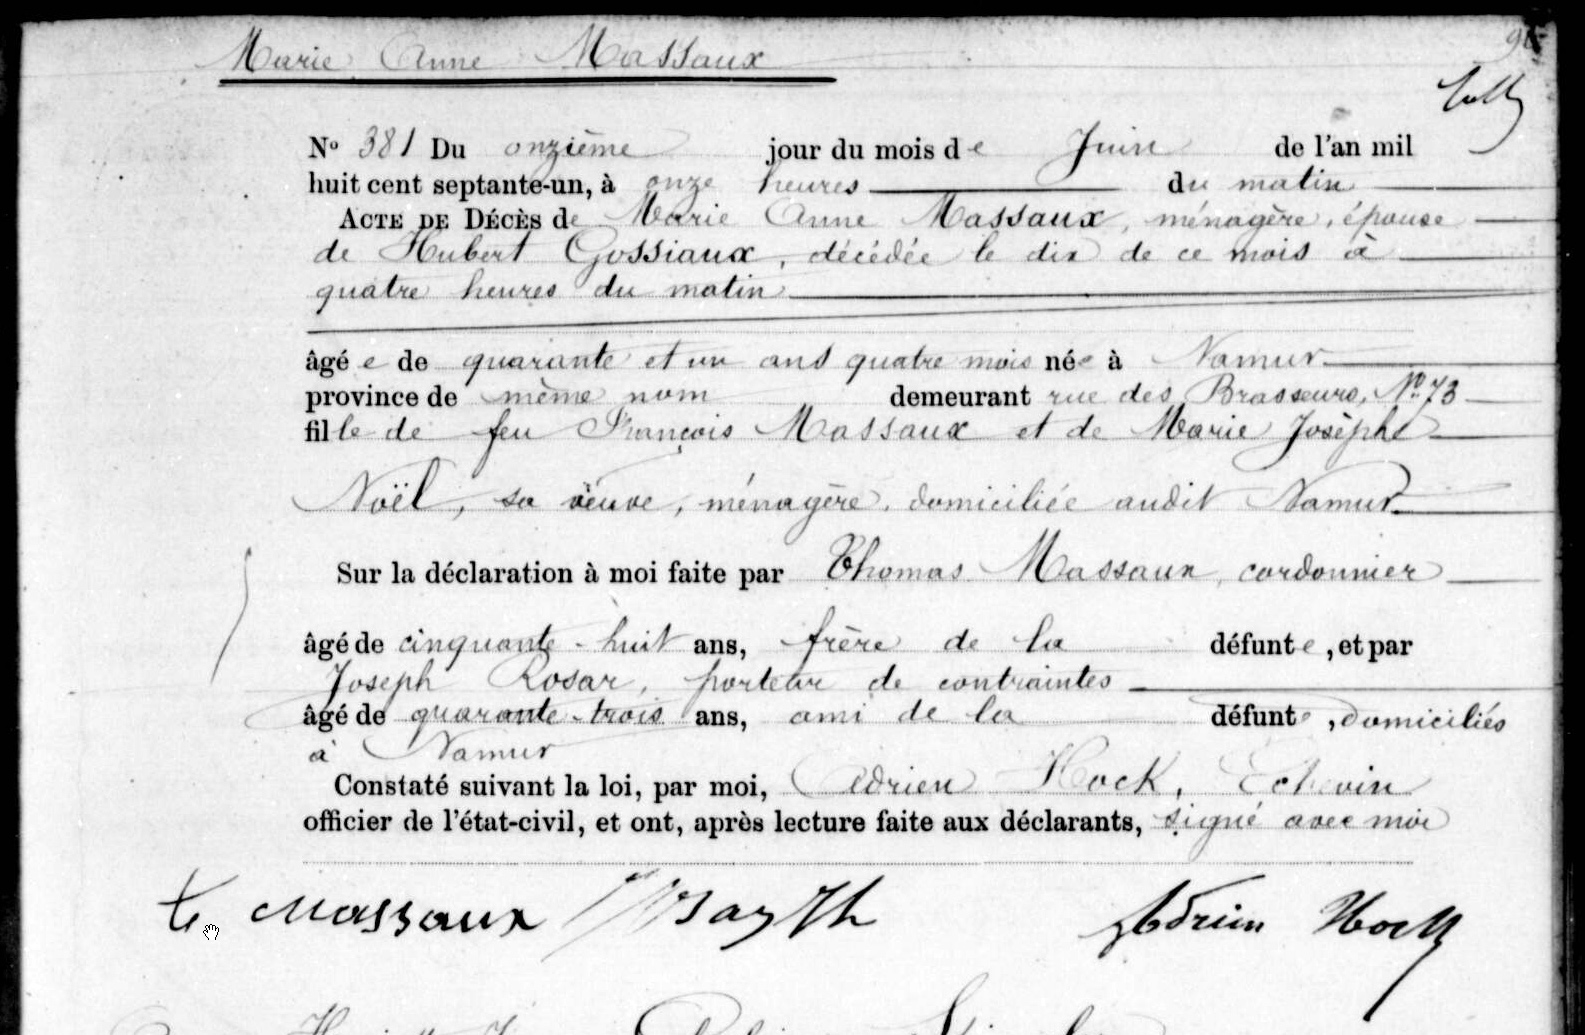 Marie Anne Massaux
Nº 381 Du onzième jour du mois de Juin de l'an mil
huit cent septante-un, à onze heures du matin
ACTE DE DÉCÈS de Marie Anne Massaux, ménagère, épouse
de Hubert Gossiaux, décédée le dix de ce mois à
quatre heures du matin
âgée de quarante et un ans quatre mois née à Namur
province de même nom demeurant rue des Brasseurs, Nº 73
fille de feu François Massaux et de Marie Josèphe
Noël, sa veuve, ménagère, domiciliée audit Namur
Sur la déclaration à moi faite par Thomas Massaux, cordonnier
âgé de cinquante-huit ans, frère de la défunte, et par
Joseph Rosar, porteur de contraintes
âgé de quarante-trois ans, ami de la défunte, domiciliés
à Namur
Constaté suivant la loi, par moi, Adrien Hock, Echevin
officier de l'état-civil, et ont, après lecture faite aux déclarants, signé avec moi
Massaux Adrien Hock